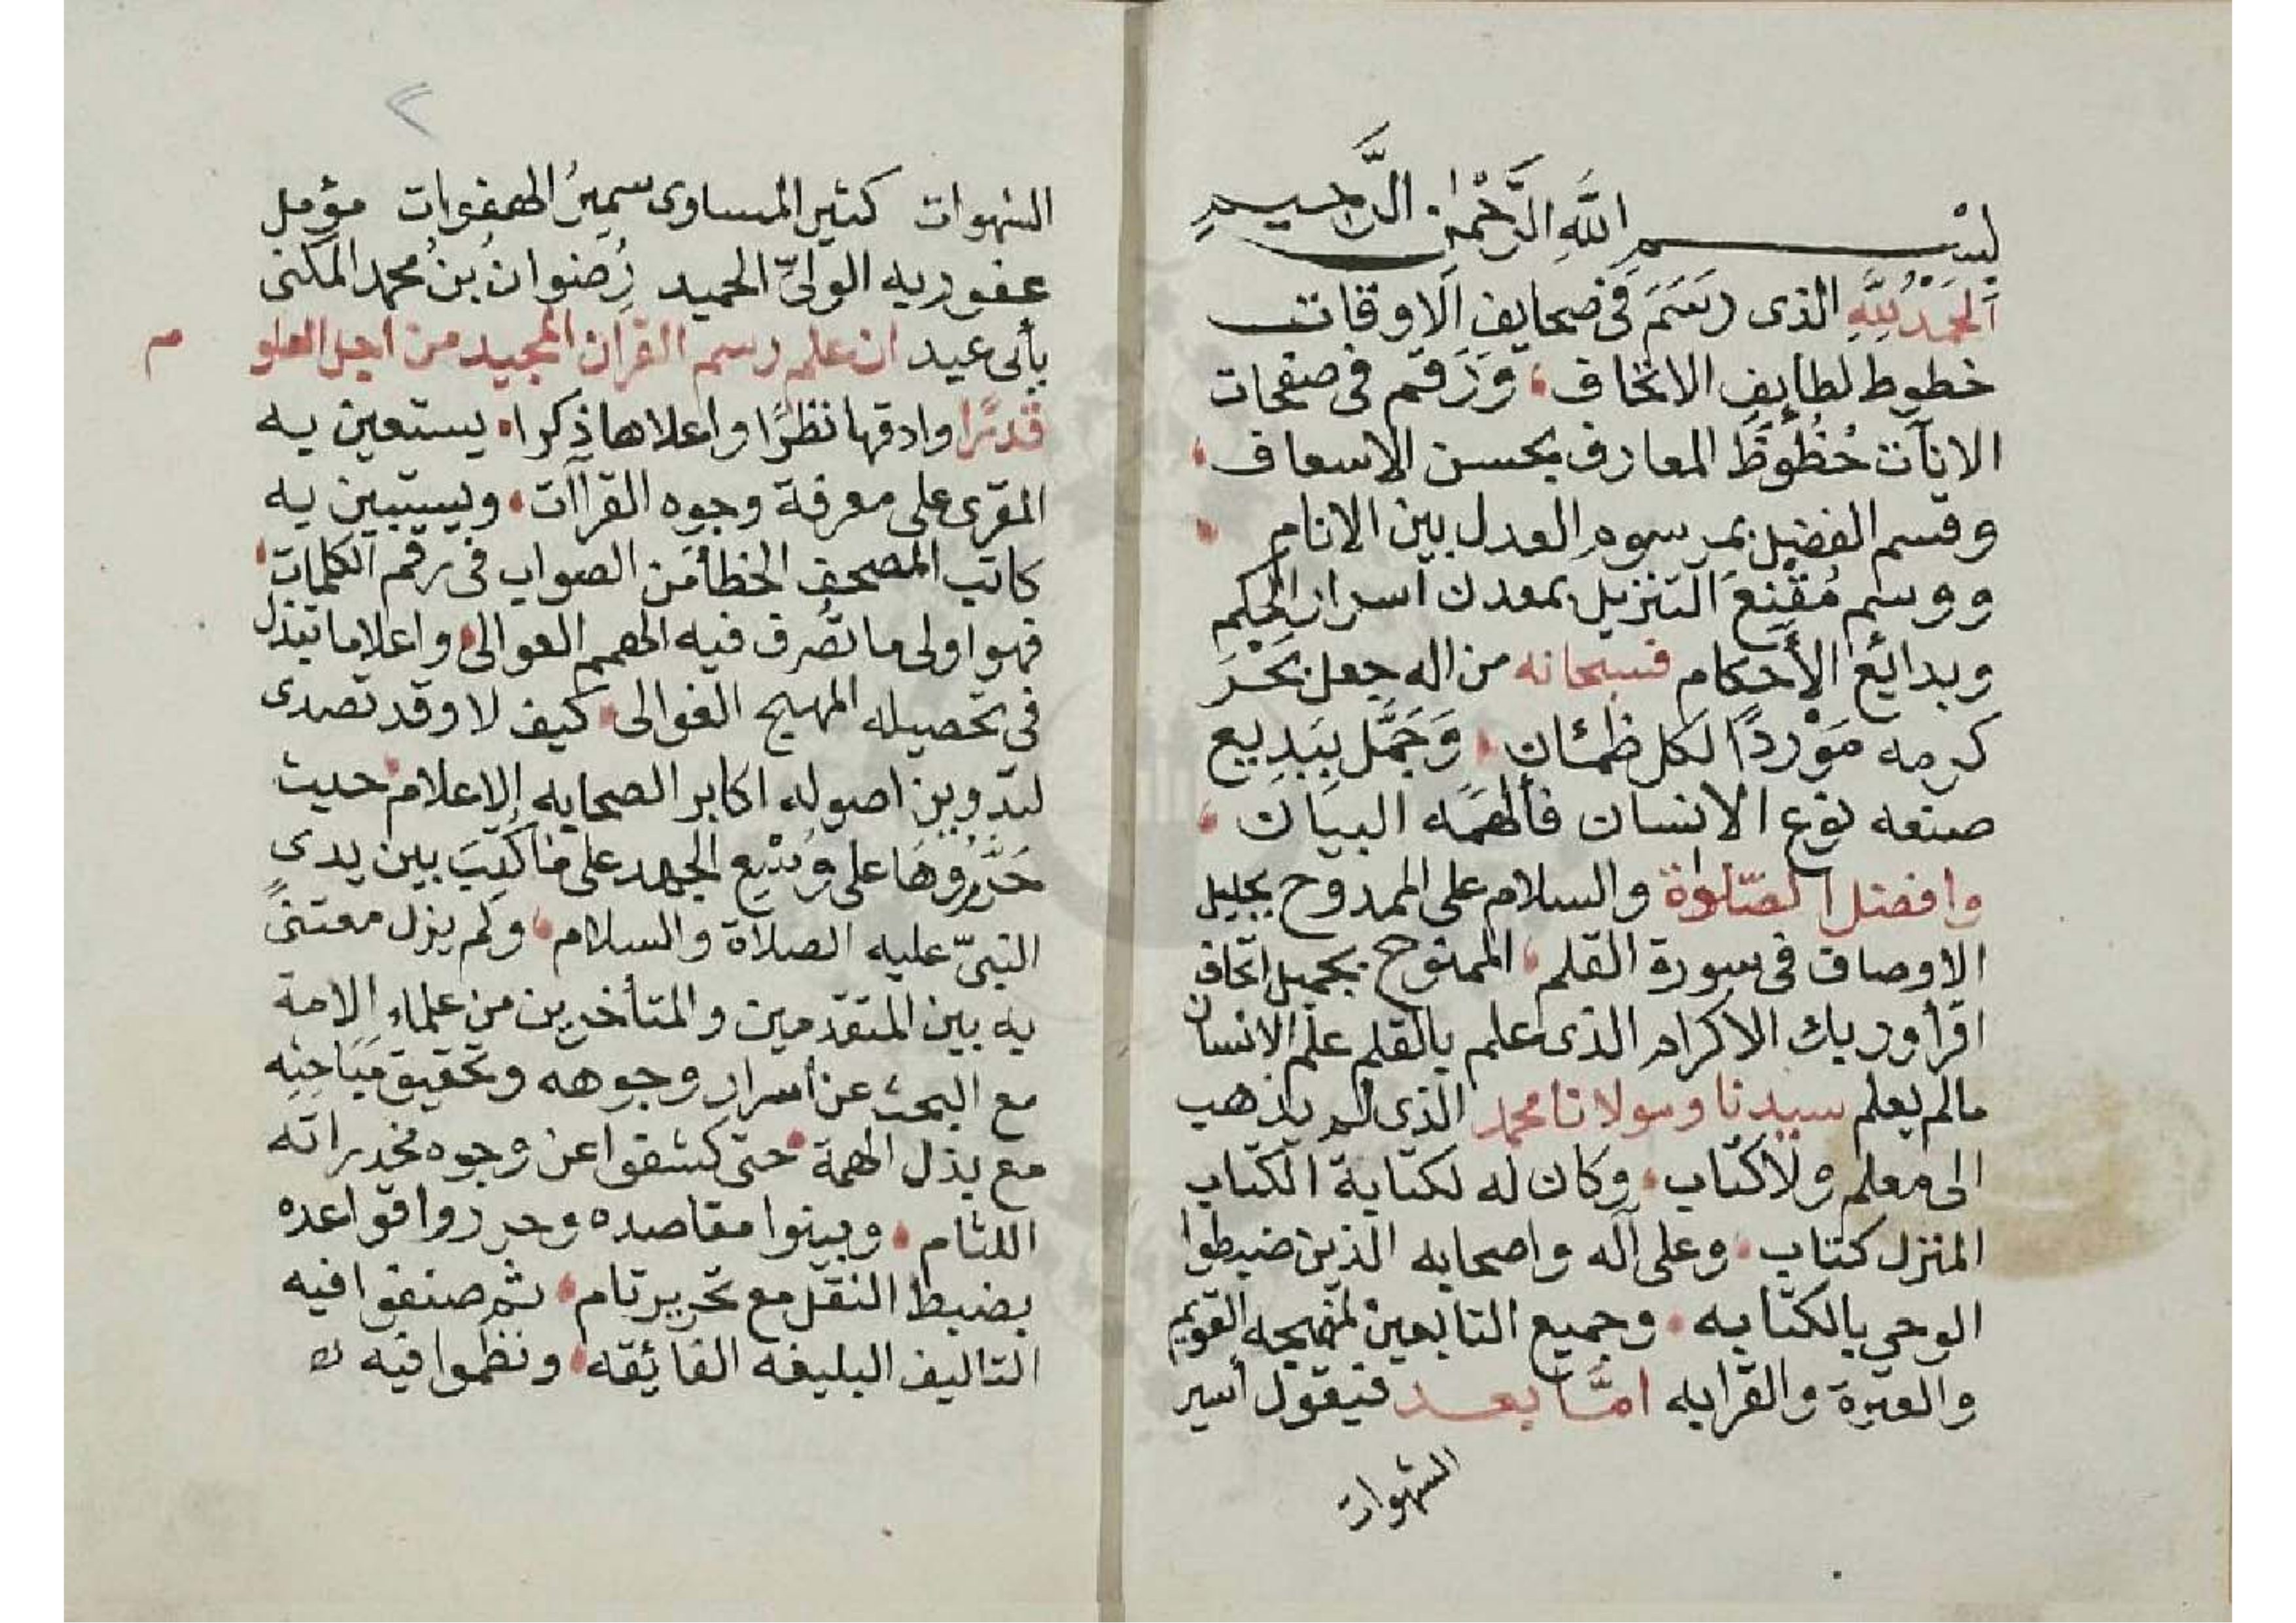 بِسْم اللَّهِ الرَّحْمٰنِ الرَّحِيم
اَلحَمْدُ لِلَّهِ الذى رَسَمَ فى صحايف الاوقات
خطوط لطايف الاتحاف، وَرَقَم فى صفحات
الانآت حُظُوظَ المعارف بحسن الاسعاف،
وقسم الفضل بمرسوم العدل بين الانام
ووسم مُقْنِعَ التنزيل بمعدن اسرار الحِكَم
وبدائع الأحكام فسبحانه من اله جعل بَحْرَ
كرمه مَوْردًا لكل ظمئان، وَجَمَّل ببَدِيع
صنعه نوع الانسان فألهمَه البيان،
وافضل الصّلٰوة والسلام على الممدوح بجليل
الاوصاف فى سورة القلم، الممنوح بجميل اتحاف
اقرأ وربك الاكرام الذى علم بالقلم علّم الانسان
مالم يعلم سيدنا ومولانا محمد الذى لم يذهب
الى معلم ولا كُتّاب، وكان له لكتابة الكتاب
المنزل كتاب، وعلى آله واصحابه الذين ضبطوا
الوحى بالكتابه، وجميع التابعين لمنهجه القويم
والعترة والقرابه امَّا بعد فيقول أسير
الشهوات
٢
الشهوات كثير المساوى سمير الهفوات مؤمل
عفو ربه الولىّ الحميد رِضوانُ بنُ محمد المكنى
بأبى عيد ان علم رسم القرآن المجيد من اجل العلو م
قدرًا وادقها نظرًا واعلاها ذكرا، يستعين به
المقرى على معرفة وجوه القراآت، ويستبين به
كاتب المصحف الخطأ من الصواب فى رقم الكلمات،
فهو اولى ما تُصرف فيه الهمم العوالى، واعلا ما تبذل
فى تحصيله المهج الغوالى، كيف لا وقد تصدى
لتدوين اصوله اكابر الصحابه الاعلام، حيث
حَرَّرُوهَا على وتْبع الجهد على ما كُتِبَ بين يدى
النبىّ عليه الصلاة والسلام، ولم يزل معتنىً
به بين المتقدمين والمتأخرين من علماء الامة
مع البحث عن أسرار وجوهه وتحقيق مَبَاحِثِه
مع بذل الهمة، حتى كشفوا عن وجوه مخدراته
اللثام، وبينوا مقاصده وحرروا قواعده
بضبط النقل مع تحرير تام، ثم صنفوا فيه
التاليف البليغه الفائقه، ونظموا فيه